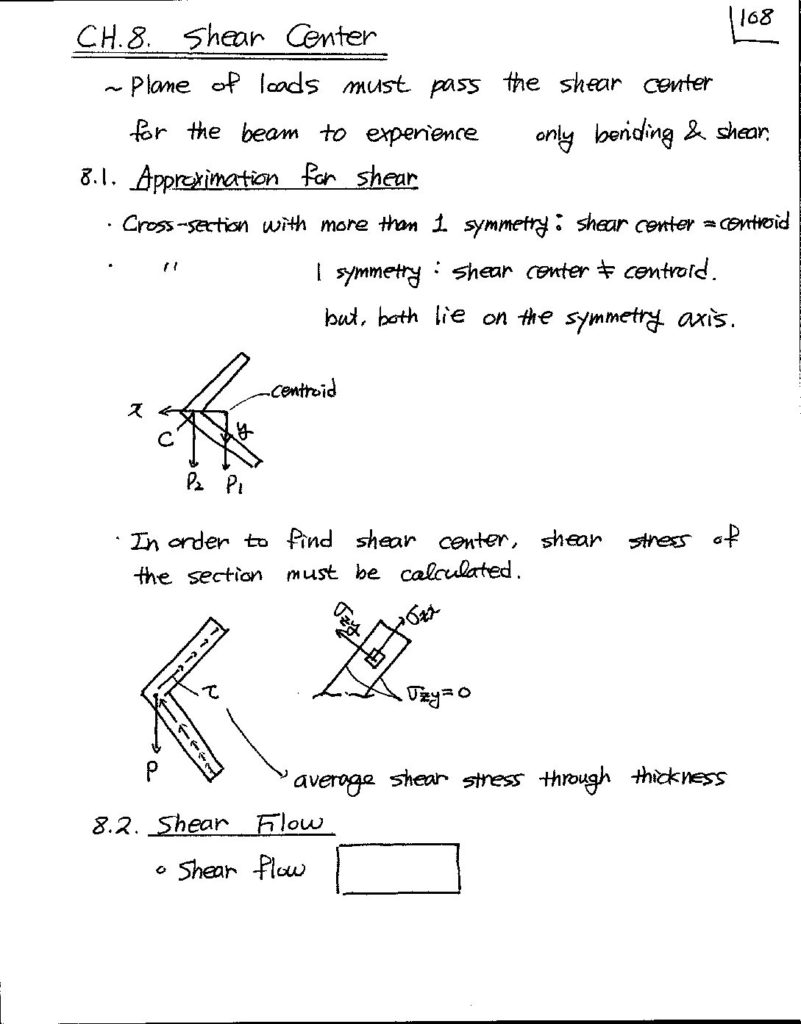 108
CH.8. Shear Center
~ Plane of loads must pass the shear center
for the beam to experience only bending & shear.
8.1. Approximation for shear
· Cross-section with more than 1 symmetry : shear center = centroid
· " 1 symmetry : shear center ≠ centroid.
but, both lie on the symmetry axis.
centroid
x
C
y
P₂ P₁
· In order to find shear center, shear stress of
the section must be calculated.
σzy
σzx
τ
σzy = 0
P
average shear stress through thickness
8.2. Shear Flow
∘ Shear flow